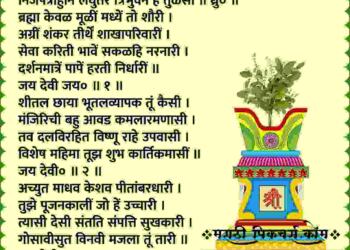 निजपत्राहुनि लघुतर त्रिभुवन हे तुळसी ॥ ध्रु० ॥
ब्रह्मा केवळ मूळीं मध्यें तो शौरी ।
अग्रीं शंकर तीर्थें शाखापरिवारीं ।
सेवा करिती भावें सकळहि नरनारी ।
दर्शनमात्रें पापें हरती निर्धारीं ॥
जय देवी जय० ॥ १ ॥
शीतल छाया भूतलव्यापक तूं कैसी ।
मंजिरिची बहु आवड कमलारमणासी ।
तव दलविरहित विष्णू राहे उपवासी ।
विशेष महिमा तूझा शुभ कार्तिकमासीं ॥
जय देवी० ॥ २ ॥
अच्युत माधव केशव पीतांबरधारी ।
तुझे पूजनकालीं जो हें उच्चारी ।
त्यासी देसी संतति संपत्ति सुखकारी ।
गोसावीसुत विनवी मजला तूं तारी ॥
श्री
मराठी पिक्चर्स.कॉम